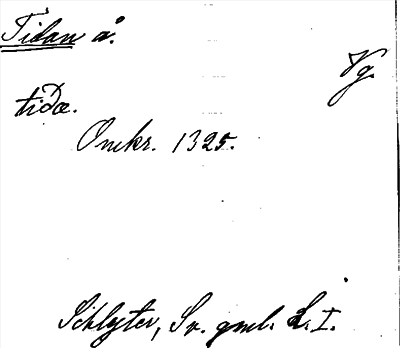 Tidan å.
Vg.
tiðæ.
Omkr. 1325.
Schlyter, Sv. gml. L. I.